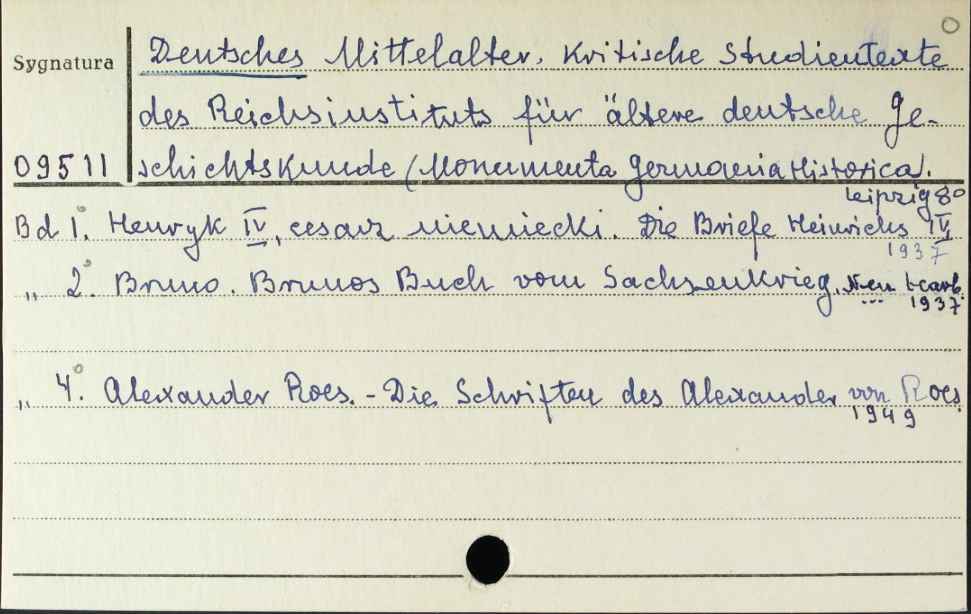 Sygnatura
Deutsches Mittelalter. Kritische Studientexte
des Reichsinstituts für ältere deutsche Ge-
09511 schichtskunde (Monumenta Germania Historica).
Leipzig 8°
Bd 1. Henryk IV, cesarz niemiecki. Die Briefe Heinrichs IV
1937
„ 2. Bruno. Brunos Buch vom Sachsenkrieg. Neu bearb.
1937
„ 4. Alexander Roes. - Die Schriften des Alexander von Roes.
1949